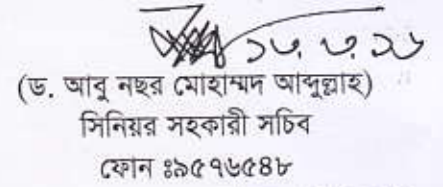 ১৩.৩.১৬
(ড. আবু নছর মোহাম্মদ আব্দুল্লাহ)
সিনিয়র সহকারী সচিব
ফোন ঃ৯৫৭৬৫৪৮